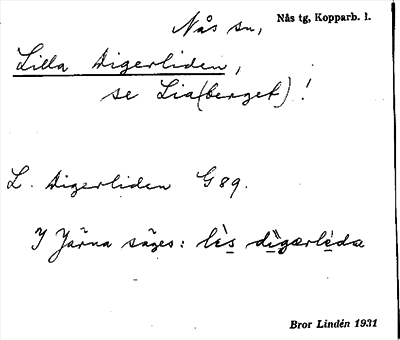 Nås sn, Nås tg, Kopparb. l.
Lilla Digerliden,
se Lia(berget)!
L. Digerliden G 89.
I Järna säges: lès dìgærlèda
Bror Lindén 1931